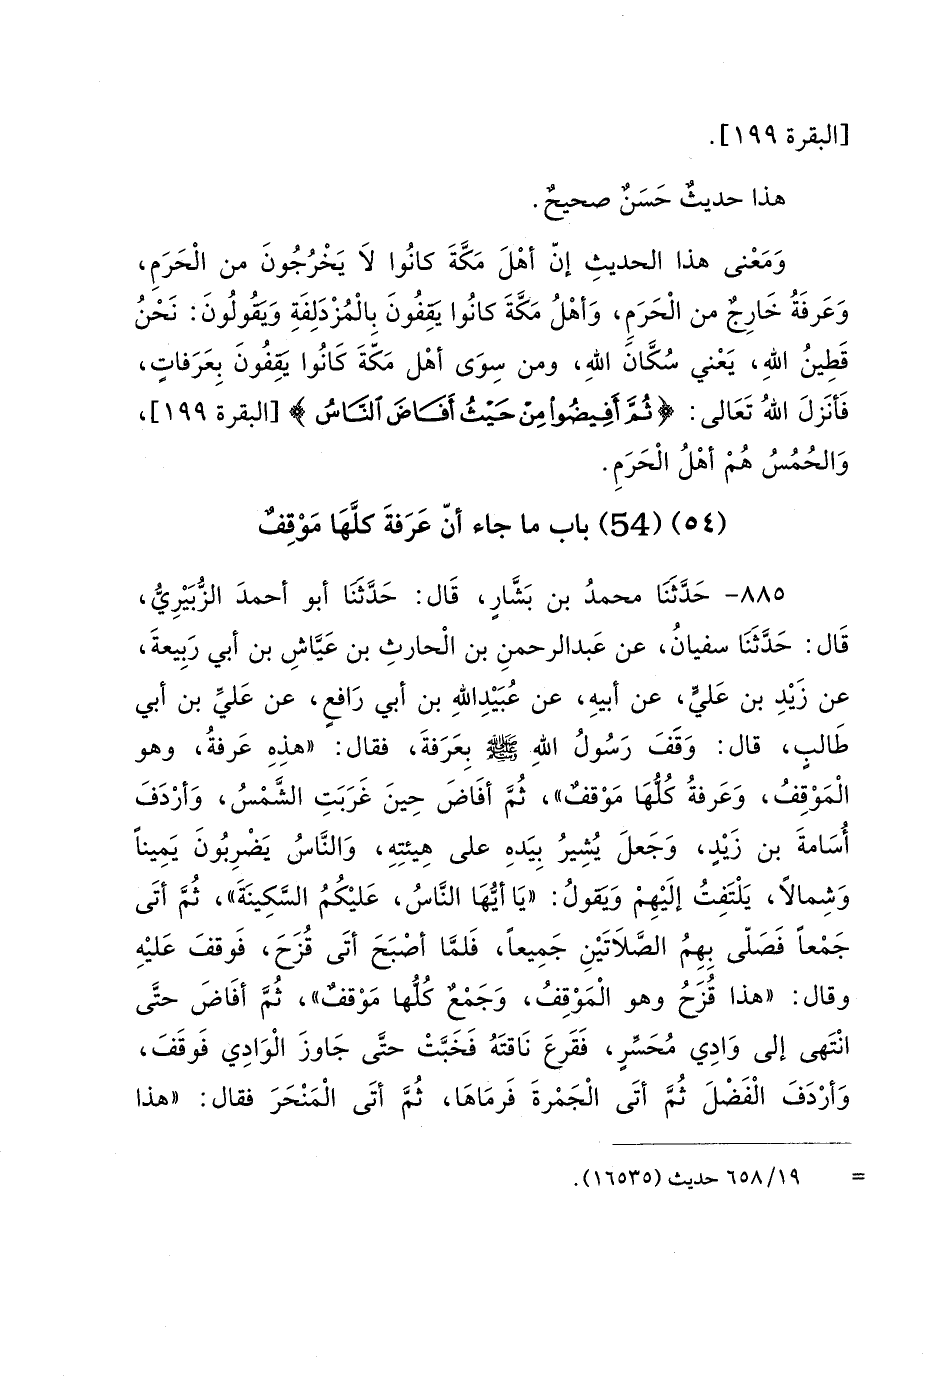 [البقرة ١٩٩].
هذا حديثٌ حَسَنٌ صحيحٌ.
وَمَعْنى هذا الحديثِ إنّ أهْلَ مَكَّةَ كانُوا لاَ يَخْرُجُونَ من الْحَرَمِ،
وَعَرفَةُ خارِجٌ من الْحَرَمِ، وَأهْلُ مَكَّةَ كانُوا يَقِفُونَ بِالْمُزْدَلِفَةِ وَيَقُولُونَ: نَحْنُ
قَطِينُ اللهِ، يَعْني سُكَّانَ اللهِ، ومن سِوَى أهْل مَكّةَ كَانُوا يَقِفُونَ بِعَرفاتٍ،
فَأنزلَ اللهُ تَعَالى: ﴿ ثُمَّ أَفِيضُوا۟ مِنْ حَيْثُ أَفَاضَ ٱلنَّاسُ ﴾ [البقرة ١٩٩]،
وَالحُمْسُ هُمْ أهْلُ الْحَرَمِ.
(٥٤) (54) باب ما جاء أنّ عَرَفةَ كلَّهَا مَوْقِفٌ
٨٨٥- حَدَّثَنَا محمدُ بن بَشَّارٍ، قَال: حَدَّثَنَا أبو أحمدَ الزُّبَيْرِيُّ،
قَال: حَدَّثَنَا سفيانُ، عن عَبدالرحمنِ بن الْحارثِ بن عَيَّاشِ بن أبي رَبِيعةَ،
عن زَيْدِ بن عَليٍّ، عن أبيهِ، عن عُبَيْدِاللهِ بن أبي رَافعٍ، عن عَليِّ بن أبي
طَالبٍ، قال: وَقَفَ رَسُولُ اللهِ ﷺ بِعَرَفةَ، فقال: «هذِهِ عَرفةُ، وهو
الْمَوْقِفُ، وَعَرفةُ كُلُّهَا مَوْقفٌ»، ثُمَّ أفَاضَ حِينَ غَرَبَتِ الشَّمْسُ، وَأرْدَفَ
أُسَامةَ بن زَيْدٍ، وَجَعلَ يُشِيرُ بِيَدهِ على هِينَتِهِ، وَالنَّاسُ يَضْرِبُونَ يَمِيناً
وَشِمالاً، يَلْتَفِتُ إلَيْهِمْ وَيَقولُ: «يَا أيُّهَا النَّاسُ، عَليْكُمُ السَّكِينَةَ»، ثُمَّ أتَى
جَمْعاً فَصَلّى بِهِمُ الصَّلَاتَيْنِ جَمِيعاً، فَلمَّا أصْبَحَ أتَى قُزَحَ، فَوقفَ عَليْهِ
وقال: «هذا قُزَحُ وهو الْمَوْقِفُ، وَجَمْعٌ كُلُّها مَوْقفٌ»، ثُمَّ أفَاضَ حتَّى
انْتَهى إلى وَادِي مُحَسِّرٍ، فَقَرعَ نَاقتَهُ فَخَبَّتْ حتَّى جَاوزَ الْوَادِي فَوقَفَ،
وَأرْدَفَ الْفَضْلَ ثُمَّ أتَى الْجَمْرةَ فَرمَاهَا، ثُمَّ أتَى الْمَنْحَرَ فقال: «هذا
= ١٩/ ٦٥٨ حديث (١٦٥٣٥).